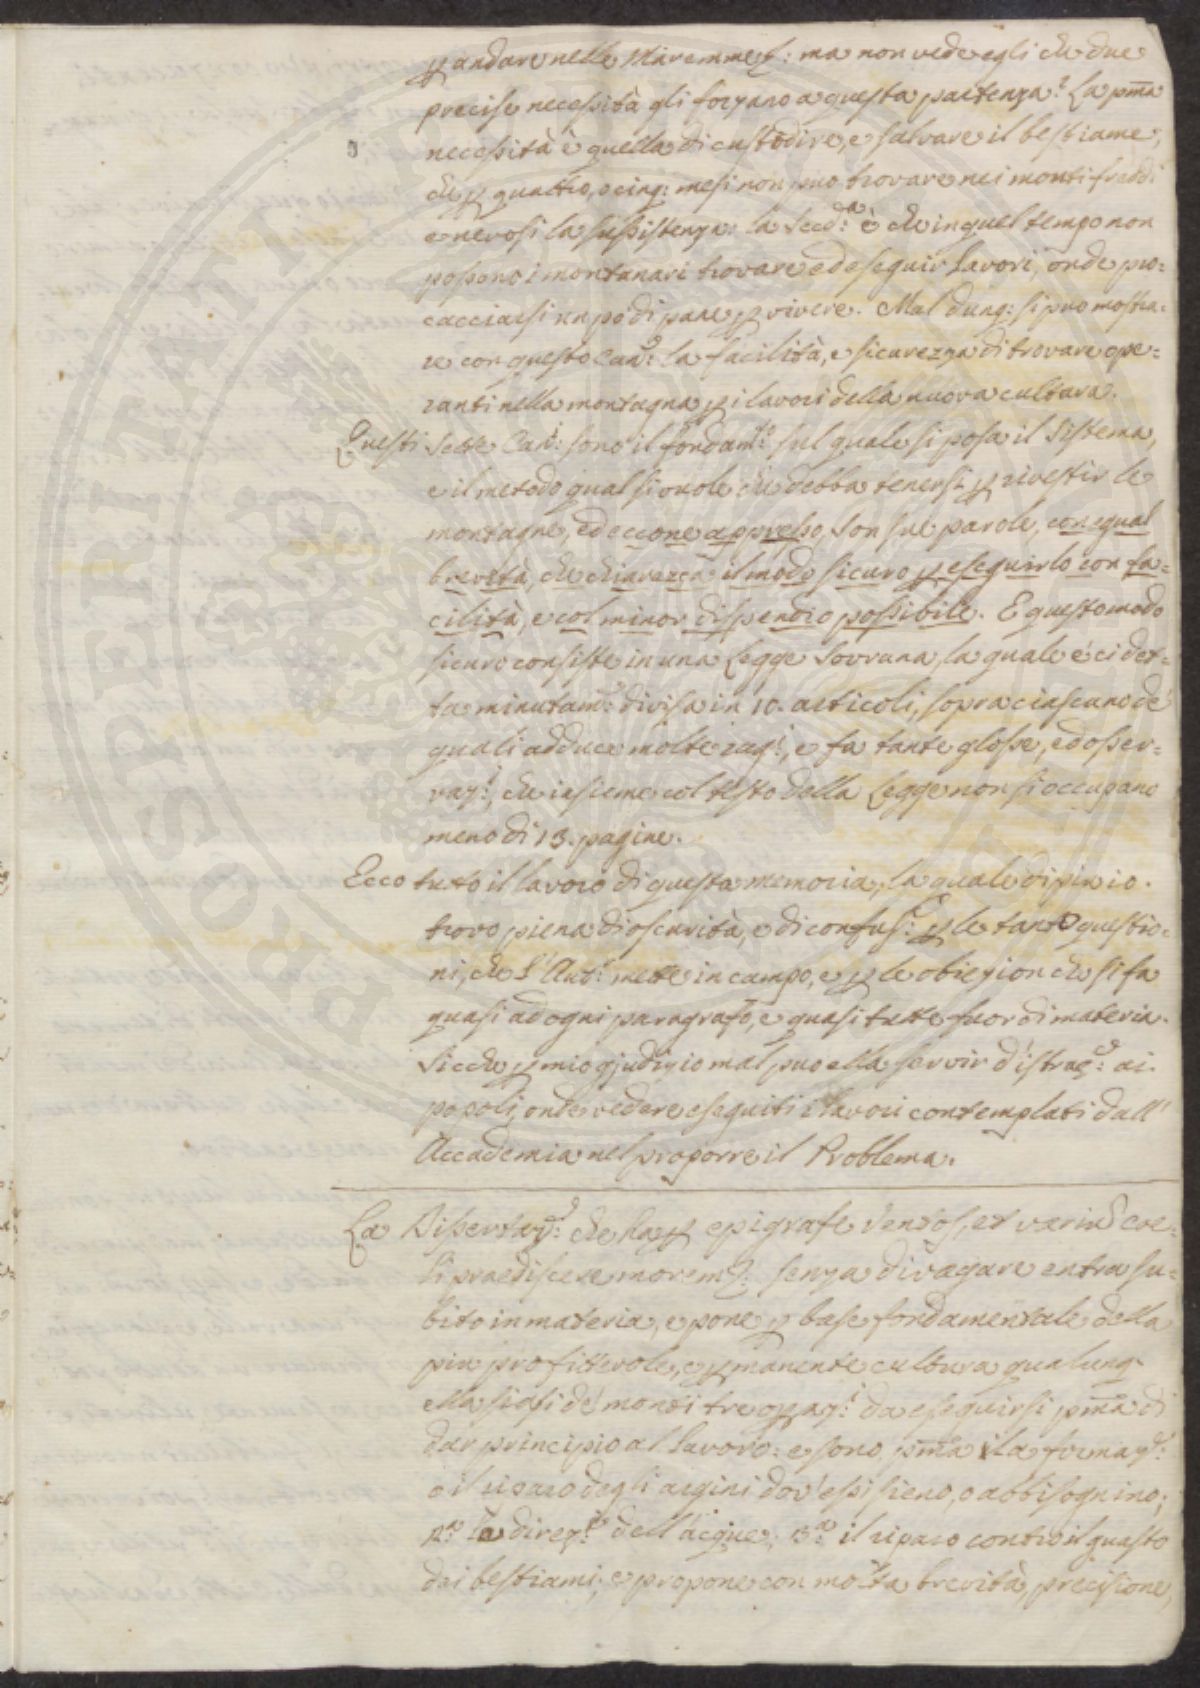 p andare nelle Maremme &: ma non vede egli che due
precise necessità gli forzano a questa partenza? La pma
necessità è quella di custodire, e salvare il bestiame,
che p quattro, o cinq: mesi non può trovare nei monti freddi
e nevosi la sussistenza: la Secda: è che in quel tempo non
possono i montanari trovare ed eseguir lavori, onde pro=
cacciarsi un pò di pane p vivere. Mal dunq: si può mostra=
re con questo Cane: la facilità, e sicurezza di trovare ope=
ranti nella montagna p i lavori della nuova cultura.
Questi sette Cani: sono il fondamto: sul quale si posa il Sistema,
e il metodo qual si vuole che debba tenersi p rivestir le
montagne, ed eccone appresso, son sue parole, con egual
brevità, che chiarezza il modo sicuro p eseguirlo con fa=
cilità, e col minor dispendio possibile. E questo modo
sicuro consiste in una Legge Sovrana, la quale è ci det=
ta minutame: divisa in 10. articoli, sopra ciascuno de'
quali adduce molte ragi:, e fa tante glosse, ed osser=
vazi:, che insieme col testo della Legge non si occupano
meno di 13. pagine.
Ecco tutto il lavoro di questa memoria, la quale di più io
trovo piena di oscurità, e di confuse: p le tante questio=
ni, che l'Aute: mette in campo, e p le obiezioni che si fa
quasi ad ogni paragrafo, e quasi tutte fuor di materia.
Sicchè p mio giudizio mal può ella servir d'istruze: ai
popoli, onde vedere eseguiti i lavori contemplati dall'
Accademia nel proporre il Problema.
La Dissertaze: che ha p epigrafe Ventos, et varium coe=
li praediscere morem &: senza divagare entra su=
bito in materia, e pone p base fondamentale della
più profittevole, e pmanente cultura qualunq
ella siasi de' monti tre opazi: da eseguirsi pma di
dar principio al lavoro: e sono pma la formaze:
o il riparo degli argini dov'essi sieno, o abbisognino;
2a: la direze: dell'acque; 3a: il riparo contro il guasto
dei bestiami; e propone con molta brevità, precisione,